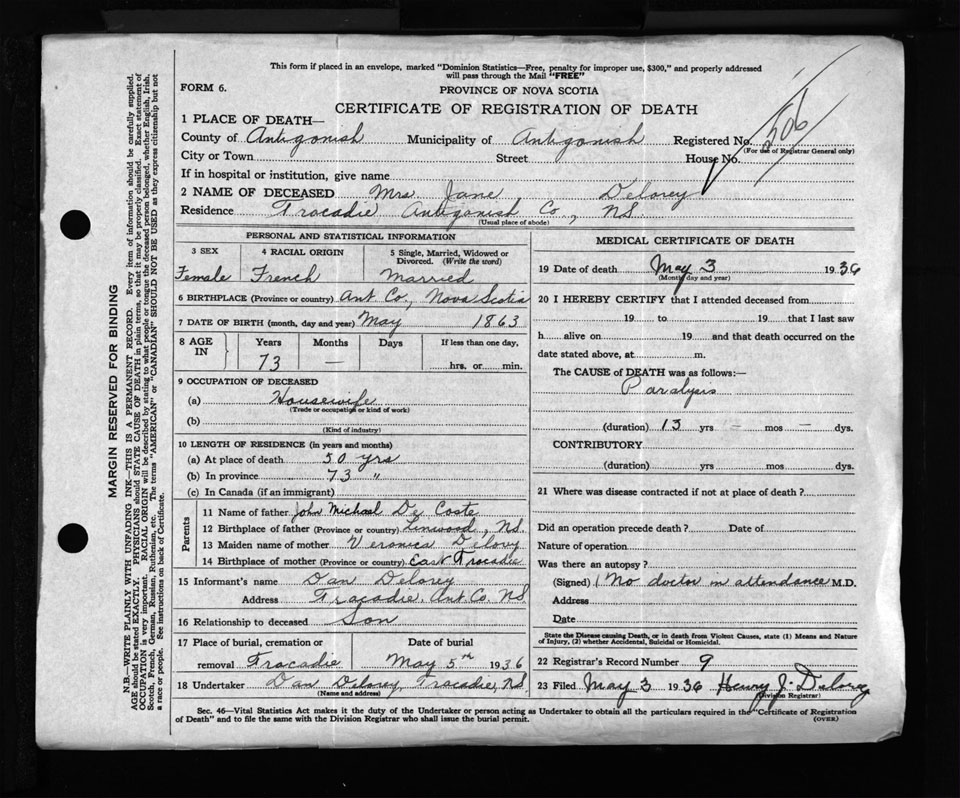 This form if placed in an envelope, marked "Dominion Statistics—Free, penalty for improper use, $300," and properly addressed
will pass through the Mail "FREE"
FORM 6.
PROVINCE OF NOVA SCOTIA
CERTIFICATE OF REGISTRATION OF DEATH
1 PLACE OF DEATH—
County of Antigonish Municipality of Antigonish Registered No. 506
(For use of Registrar General only)
City or Town Street House No.
If in hospital or institution, give name
2 NAME OF DECEASED Mrs. Jane Delorey
Residence Tracadie Antigonish Co., NS.
(Usual place of abode)
PERSONAL AND STATISTICAL INFORMATION
3 SEX 4 RACIAL ORIGIN 5 Single, Married, Widowed or
Divorced. (Write the word)
Female French Married
6 BIRTHPLACE (Province or country) Ant. Co., Nova Scotia
7 DATE OF BIRTH (month, day and year) May 1863
8 AGE IN Years Months Days If less than one day,
73 — hrs. or min.
9 OCCUPATION OF DECEASED
(a) Housewife
(Trade or occupation or kind of work)
(b)
(Kind of industry)
10 LENGTH OF RESIDENCE (in years and months)
(a) At place of death 50 yrs
(b) In province 73 "
(c) In Canada (if an immigrant)
Parents
11 Name of father John Michael De Coste
12 Birthplace of father (Province or country) Linwood, NS.
13 Maiden name of mother Veronica Delory
14 Birthplace of mother (Province or country) East Tracadie
15 Informant's name Dan Delorey
Address Tracadie, Ant. Co. NS
16 Relationship to deceased Son
17 Place of burial, cremation or Date of burial
removal Tracadie May 5th 1936
18 Undertaker Dan Delorey, Tracadie, NS
(Name and address)
MEDICAL CERTIFICATE OF DEATH
19 Date of death May 3 1936
(Month, day and year)
20 I HEREBY CERTIFY that I attended deceased from
19 to 19 that I last saw
h alive on 19 and that death occurred on the
date stated above, at m.
The CAUSE of DEATH was as follows:—
Paralysis
(duration) 13 yrs — mos — dys.
CONTRIBUTORY
(duration) yrs mos dys.
21 Where was disease contracted if not at place of death?
Did an operation precede death? Date of
Nature of operation
Was there an autopsy?
(Signed) No doctor in attendance M.D.
Address
Date
State the Disease causing Death, or in death from Violent Causes, state (1) Means and Nature
of Injury, (2) whether Accidental, Suicidal or Homicidal.
22 Registrar's Record Number 9
23 Filed May 3 1936 Henry J. Delorey
(Division Registrar)
Sec. 46—Vital Statistics Act makes it the duty of the Undertaker or person acting as Undertaker to obtain all the particulars required in the "Certificate of Registration
of Death" and to file the same with the Division Registrar who shall issue the burial permit.
(OVER)
MARGIN RESERVED FOR BINDING
N.B.—WRITE PLAINLY WITH UNFADING INK—THIS IS A PERMANENT RECORD. Every item of information should be carefully supplied.
AGE should be stated EXACTLY. PHYSICIANS should STATE CAUSE OF DEATH in plain terms, so that it may be properly classified. Exact statement of
OCCUPATION is very important. RACIAL ORIGIN will be described by stating to what people or tongue the deceased person belonged, whether English, Irish,
Scotch, French, German, Russian, Ruthenian, etc. The terms "AMERICAN" or "CANADIAN" SHOULD NOT BE USED as they express citizenship but not
a race or people. See instructions on back of Certificate.